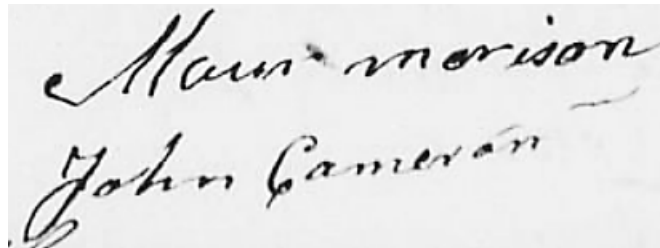 morison
John Cameron